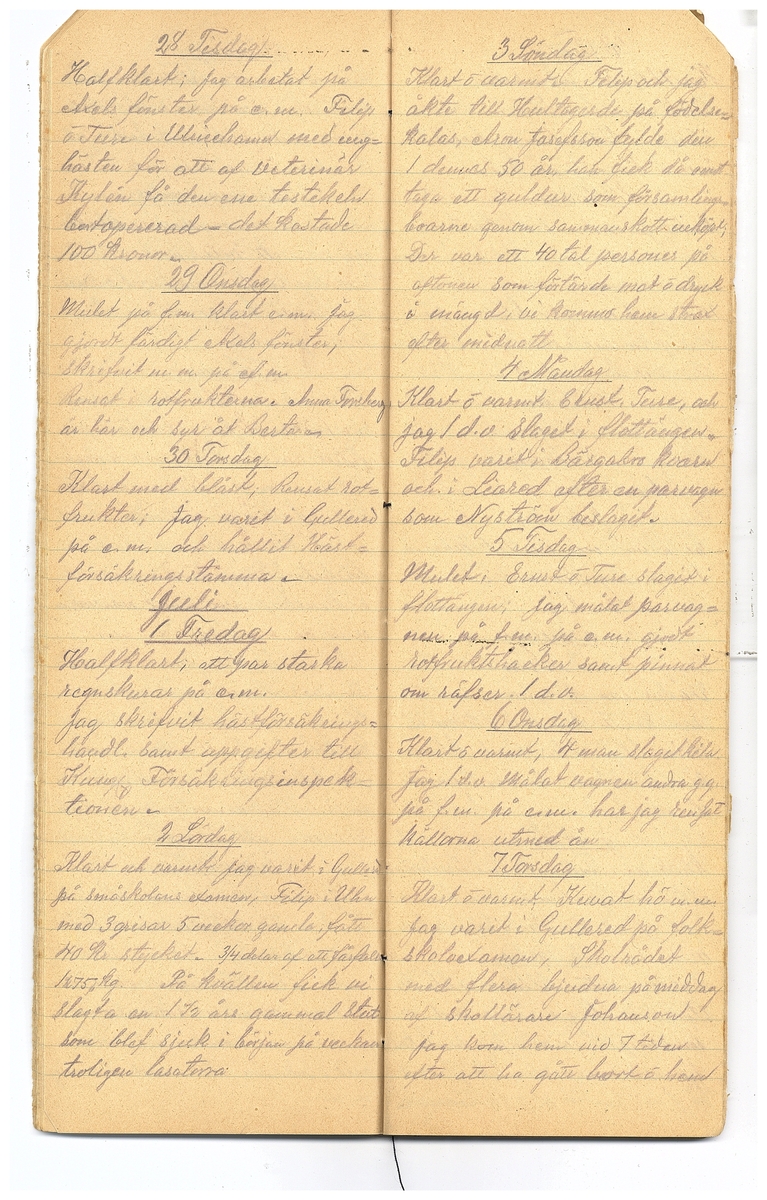 28 Tisdag
Halfklart; jag arbetat på
Axels fönster på e.m. Filip
ö Ture i Ulricehamn med ung=
hästen för att af veterinär
Kylén få den ene testekeln
bortopererad – det kostade
100 kronor.
29 Onsdag
Mulet på f.m. klart e.m. jag
gjort färdigt Axels fönster,
skrifvit m.m. på e.m.
Rensat i rotfrukterna. Anna Forsberg
är här och syr åt Berta
30 Torsdag
Klart med blåst, Rensat rot=
frukter; jag varit i Gullered
på e.m. och hållit Häst=
försäkringsstämma.
Juli
1 Fredag
Halfklart, ett par starka
regnskurar på e.m.
jag skrifvit hästförsäkrings=
handl. samt uppgifter till
Kungl Försäkringsinspek=
tionen.
2 Lördag
Klart och varmt. jag varit i Gullered
på småskolans examen, Filip i Uhn
med 3 grisar 5 veckor gamla, fått
40 Kr stycket. 3/4 delar af ett
kg. På kvällen fick vi
slagta en 1 1/2 års gammal stut
som blef sjuk i början på veckan
troligen
3 Söndag
Klart ö varmt. Filip och jag
åkte till Hultagerde på födelse=
kalas, Aron Josefsson fylde den
1 dennes 50 år, han fick då emot
taga ett guldur som församlings=
boarne genom sammanskott inköpt;
Der var ett 40 tal personer på
aftonen som förtärde mat ö dryck
i mängd; vi kommo hem strax
efter midnatt
4 Måndag
Klart ö varmt. Ernst, Ture, och
jag 1 d.v. slaget i flottängen.
Filip varit i Bärgabro kvarn
och i Liared efter en parvagn
som Nyström beslaget.
5 Tisdag
Mulet; Ernst ö Ture slaget i
flottängen; jag målat parvag=
nen på f.m. på e.m. gjort
rotfruktshackor samt pinnat
om räfser 1 d.v.
6 Onsdag
Klart ö varmt, 4 man slaget
jag 1 d.v. målat vagnen andra gg
på f.m. på e.m. har jag rensat
källorna utmed ån
7 Torsdag
Klart ö varmt, Kuvat hö m.m.
jag varit i Gullered på folk=
skolexamen, Skolrådet
med flera bjudna på middag
af skollärare Johanson
Jag kom hem vid 7 tiden
efter att ha gått bort ö hem